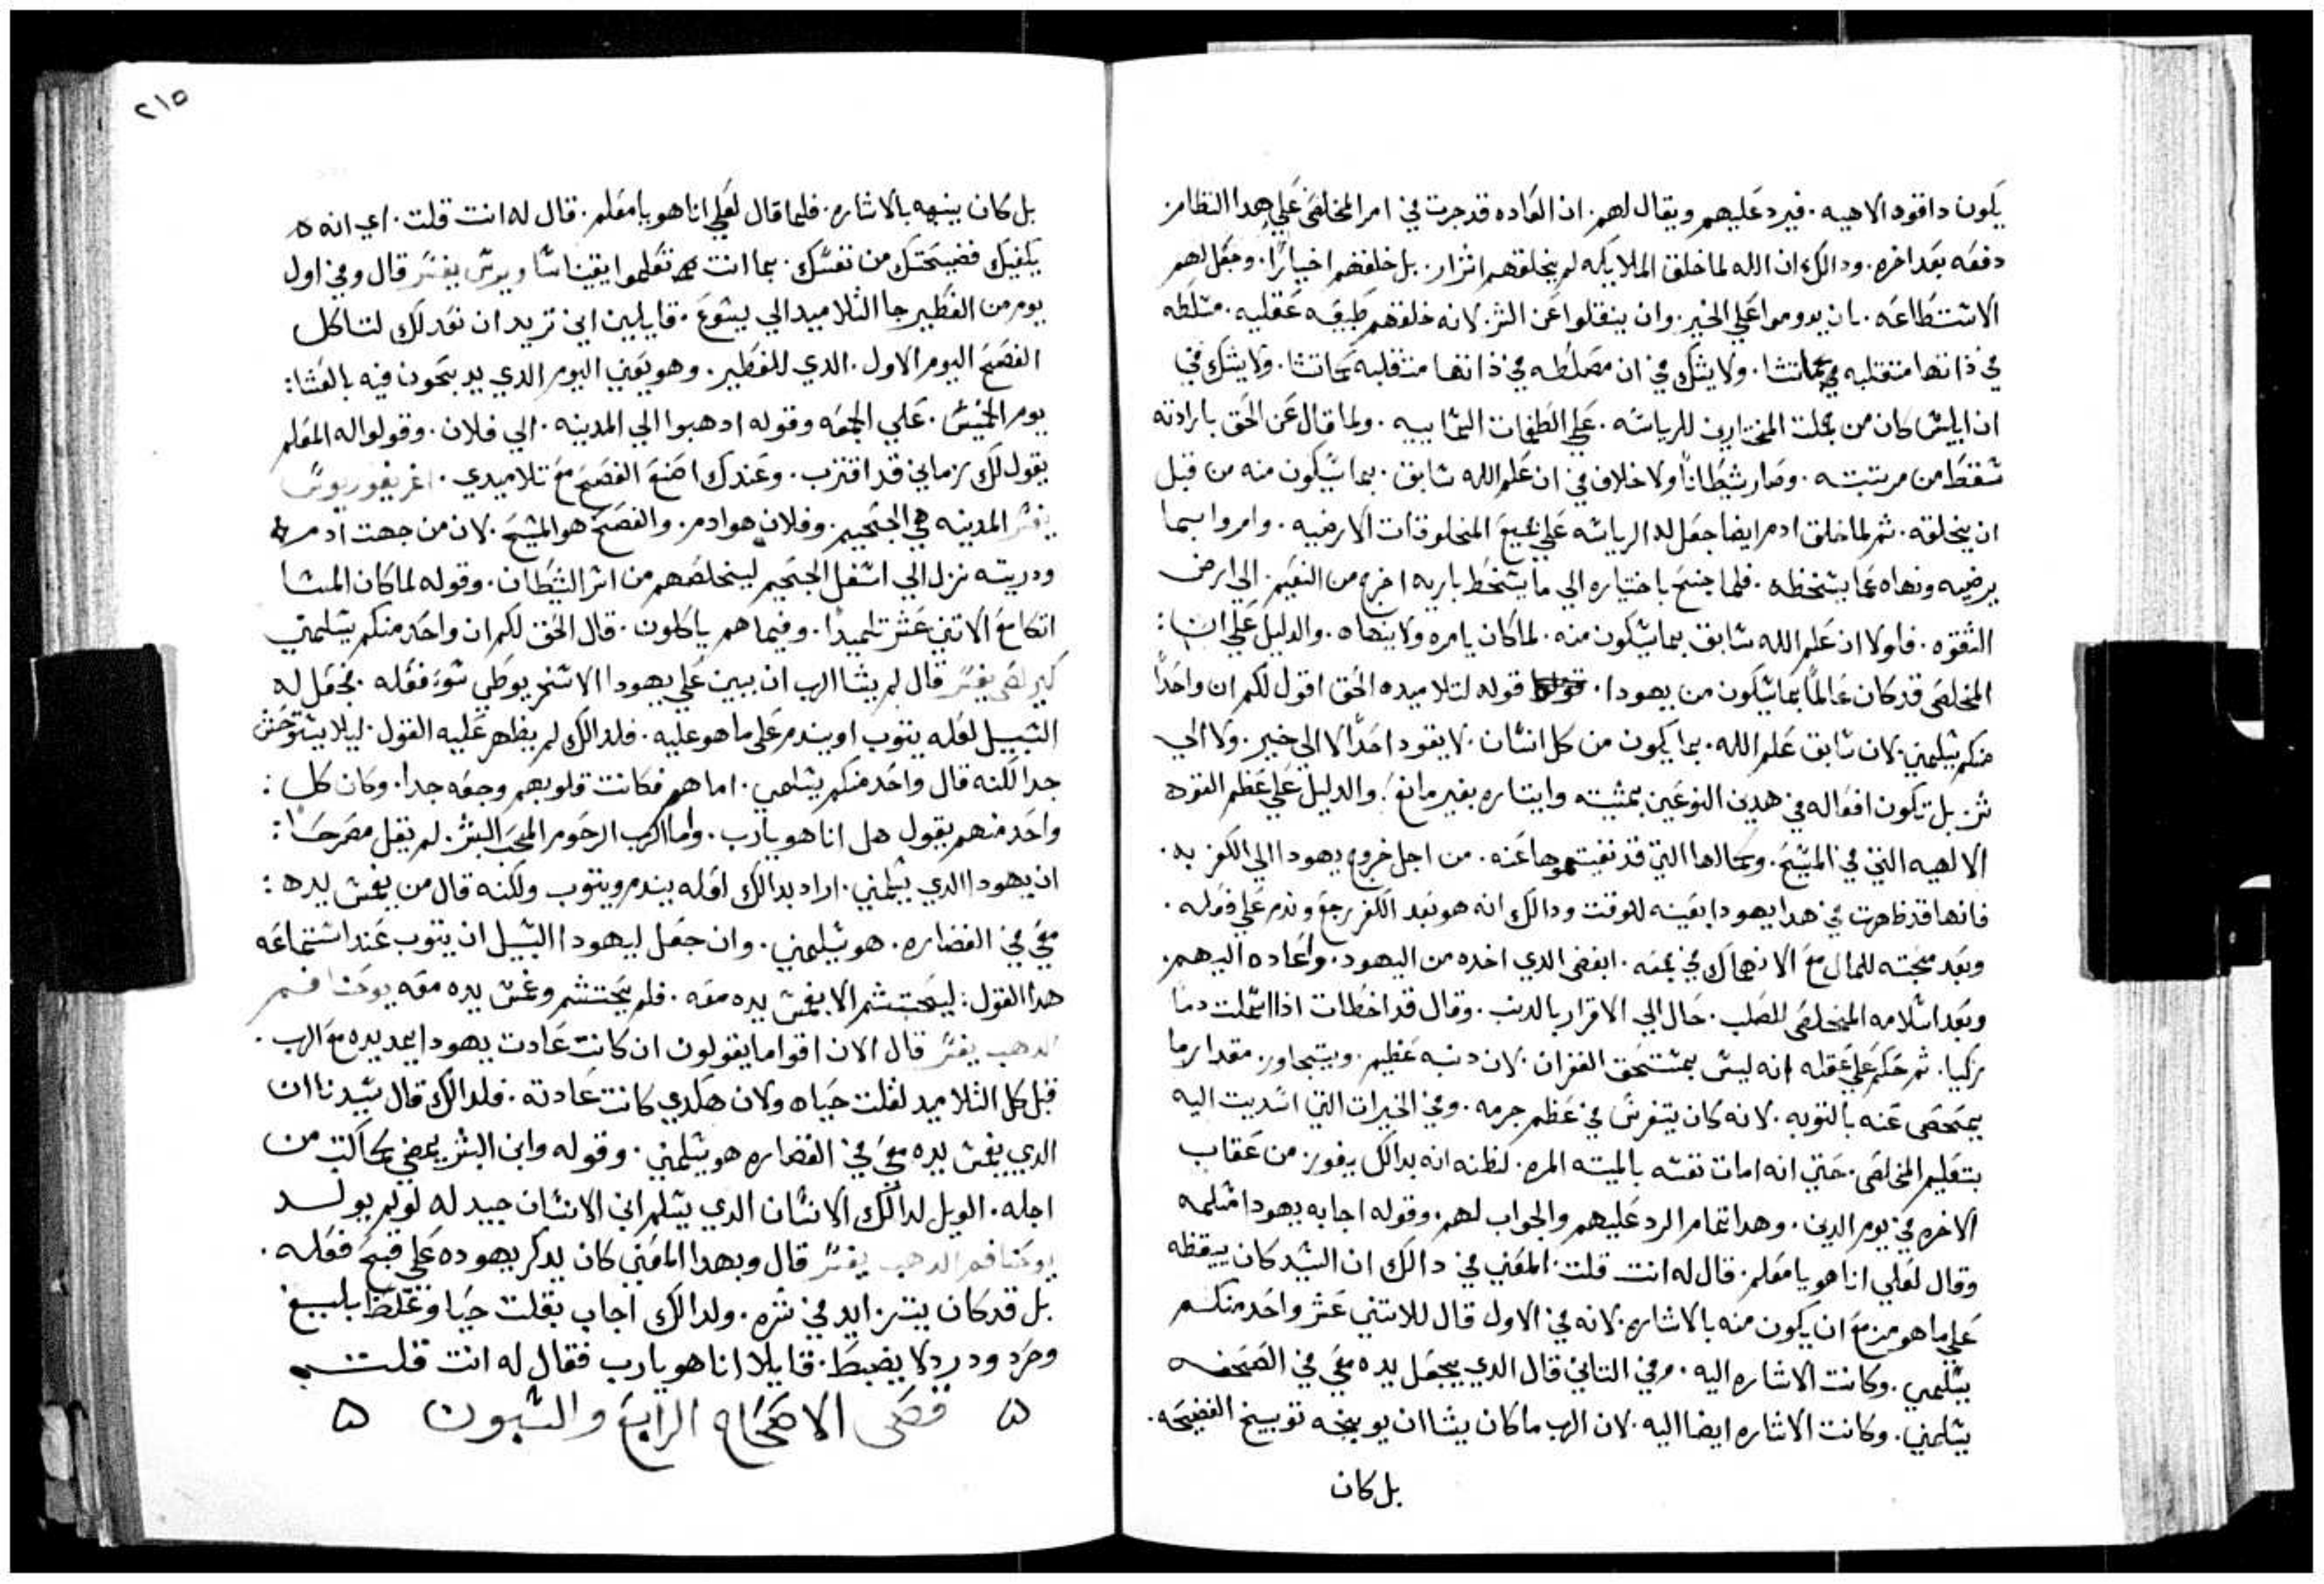 يكون داقوه الاهيه. فيرد عليهم ويقال لهم. ان العاده قد جرت في امر المخلص علي هدا النظام
دفعه بعد اخره. ودالك ان الله لما خلق الملايكه لم يخلقهم اشرار. بل خلقهم اخيارًا. وجعل لهم
الاستطاعه. بان يدوموا علي الخير. وان ينتقلوا عن الشر. لانه خلقهم طبيعه عقليه. متسلطه
في ذاتها منتقلبه كماتشا. ولا يشك في ان متسلطه في ذاتها منتقلبه كماتشا. ولا يشك في
ان ابليس كان من جملت المختارين للرياسه. علي الطغمات السماييه. ولما قال عن الحق بارادته
سقط من مرتبته. وصار شيطانًا ولا خلاف في ان علم الله سابق. بما سيكون منه من قبل
ان يخلقه. ثم لما خلق ادم ايضا جعل له الرياسه علي جميع المخلوقات الارضيه. وامره بما
يرضيه ونهاه عما يسخطه. فلما جنح باختياره الي ما يسخط باريه اخرج من النعيم. الي ارض
الشقوه. فلولا ان علم الله سابق بما سيكون منه. لما كان يامره ولا ينهاه. والدليل علي ان:
المخلص قد كان عالمًا بما سيكون من يهودا. قوله لتلاميده الحق اقول لكم ان واحدًا
منكم يسلمني. لان سابق علم الله. بما يكون من كل انسان. لا يقود احدًا لا الي خير. ولا الي
شر. بل تكون افعاله في هدين النوعين بمشيته وايتاره بغير مانع. والدليل علي عظم القوه
الالهيه التي في المسيح. وكمالها التي قد نفيتموها عنه. من اجل خروج يهودا الي الكفر به.
فانها قد ظهرت في هدا يهودا بعينه للوقت ودالك انه هو بعد الكفر رجع وندم علي فعله.
وبعد محبته للمال مع الانهماك في جمعه. ابغض الدي اخده من اليهود. واعاده اليهم.
وبعد اسلامه المخلص للصلب. حال الي الاقرار بالدنب. وقال قد اخطات اذ اسلمت دمًا
زكيا. ثم حكم علي عقله انه ليس بمستحق الغفران. لان دنبه عظيم. ويتجاوز مقدار ما
يمحص عنه بالتوبه. لانه كان يتفرس في عظم جرمه. وفي الخيرات التي اسديت اليه
بتعليم المخلص. حتي انه امات نفسه بالميته المره. لظنه انه بدالك يفوز من عقاب
الاخره في يوم الدين. وهدا تمام الرد عليهم والجواب لهم. وقوله اجابه يهودا مسلمه
وقال لعلي انا هو يا معلم. قال له انت قلت. المعني في دالك ان السيد كان ييقظه
علي ما هو مزمع ان يكون منه بالاشاره. لانه في الاول قال للاتني عشر واحد منكم
يسلمني. وكانت الاشاره اليه. وفي التاني قال الدي يجعل يده معي في الصحفه
يسلمني. وكانت الاشاره ايضا اليه. لان الرب ما كان يشا ان يوبخه توبيخ الفضيحه.
بل كان
٢١٥
بل كان ينبهه بالاشاره. فلما قال لعلي انا هو يا معلم. قال له انت قلت. اي انه
يكفيك فضيحتك من نفسك. بما انت قال وفي اول
يوم من الفطير جا التلاميد الي يسوع. قايلين اين تريد ان نعد لك لتاكل
الفصح اليوم الاول. الدي للفطير. وهو يعني اليوم الدي يدبحون فيه بالعشا:
يوم الخميس. علي الجمعه وقوله ادهبوا الي المدينه. الي فلان. وقولوا له المعلم
يقول لك زماني قد اقترب. وعندك اصنع الفصح مع تلاميدي. اغريغوريوس
يفسر المدينه هي الجحيم. وفلان هو ادم. والفصح هو المسيح. لان من جهت ادم
ودريته نزل الي اسفل الجحيم ليخلصهم من اسر الشيطان. وقوله لما كان المسا
اتكا مع الاتني عشر تلميدًا. وفيما هم ياكلون. قال الحق لكم ان واحد منكم يسلمني
كيرلص يفسر قال لم يشا الرب ان يبين علي يهودا الاسخريوطي سو فعله. يجعل له
السبيل لعله يتوب او يندم علي ما هو عليه. فلدالك لم يظهر عليه القول. ليلا يستوحش
جدا لكنه قال واحد منكم يسلمني. اما هم فكانت قلوبهم وجعه جدا. وكان كل:
واحد منهم يقول هل انا هو يارب. واما الرب الرحوم المحب البشر. لم يقل مصرحًا:
ان يهودا الدي يسلمني. اراد بدالك لعله يندم ويتوب ولكنه قال من يغمس يده:
معي في الغضاره. هو يسلمني. وان جعل ليهودا السبيل ان يتوب عند استماعه
هدا القول: ليحتشم الا يغمس يده معه. فلم يحتشم وغمس يده معه يوحنا فم
الدهب يفسر قال الان اقواما يقولون ان كانت عادت يهودا يمد يده مع الرب.
قبل كل التلاميد لقلت حياه ولان هكدي كانت عادته. فلدالك قال سيدنا ان
الدي يغمس يده معي في الغضاره هو يسلمني. وقوله وابن البشر يمضي كما كتب من
اجله. الويل لدالك الانسان الدي يسلم ابن الانسان جيد له لو لم يولد
يوحنا فم الدهب يفسر قال وبهدا المعني كان يدكر يهوده علي قبح فعله.
بل قد كان يتزايد في شره. ولدالك اجاب بقلت حيا وغلظ بليغ
وحرد ودرد لا يضبط. قايلا انا هو يارب فقال له انت قلت
فصى الاصحاح الرابع والسبعون